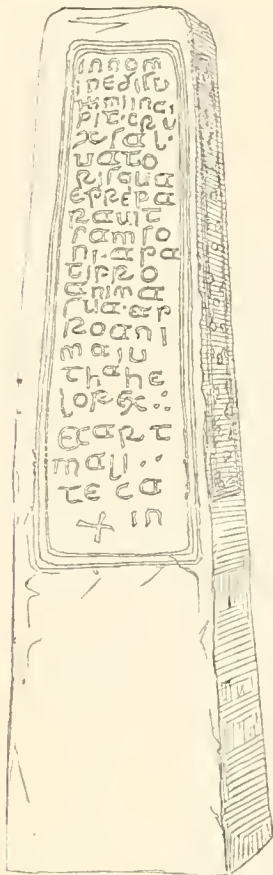 INNOM
INEDISU
MMIINCI
PIT·CRU
X SAL·
UATO
RISQUA
EPREPA
RAUIT
SAMSO
NI·APA
TIPRO
ANIMA
SUA·EP
ROANI
MAIU
THAHE
LOREX∴
ETART
MALI∴
TECA
+ IN